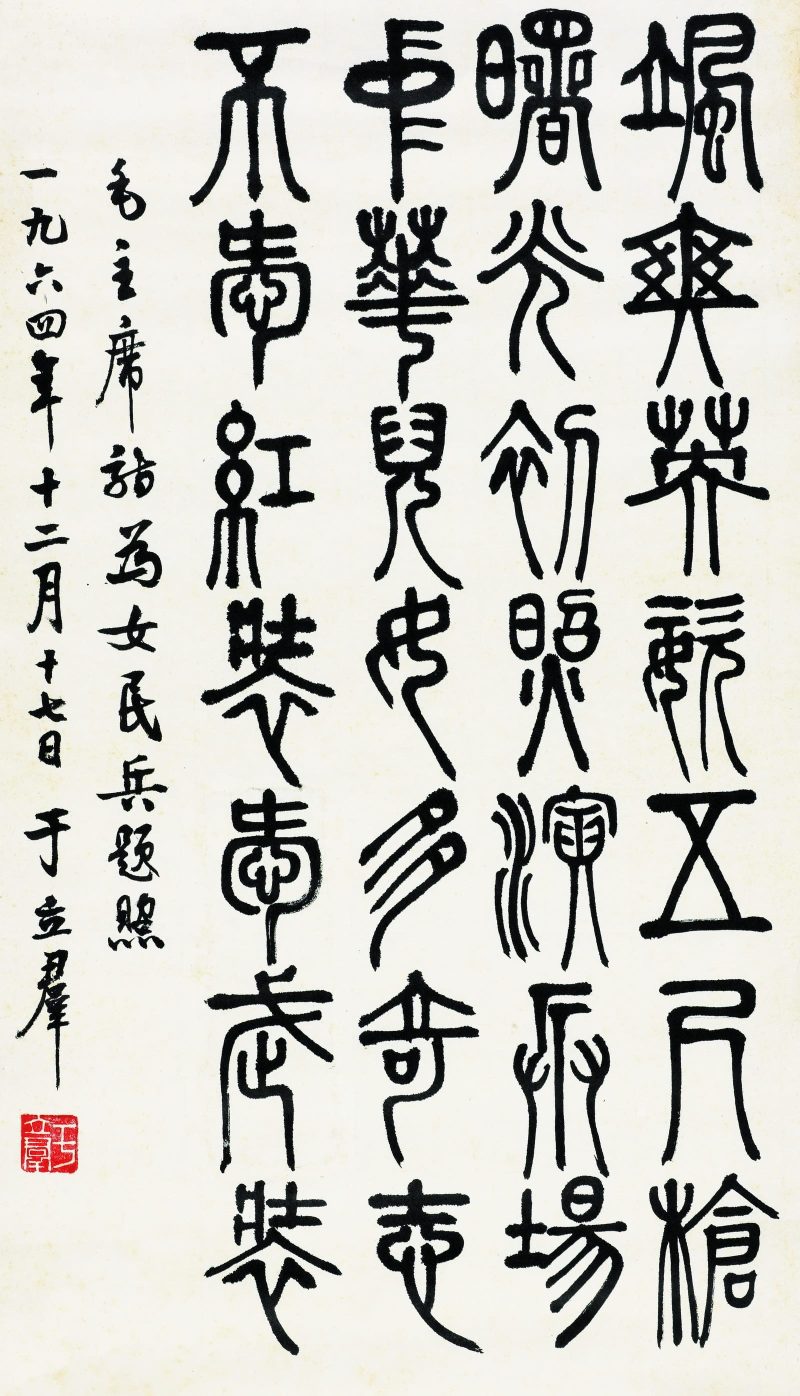 颯爽英姿五尺槍
曙光初照演兵場
中華兒女多奇志
不愛紅裝愛武裝
毛主席詩為女民兵題照
一九六四年十二月十七日 于立群
于立群